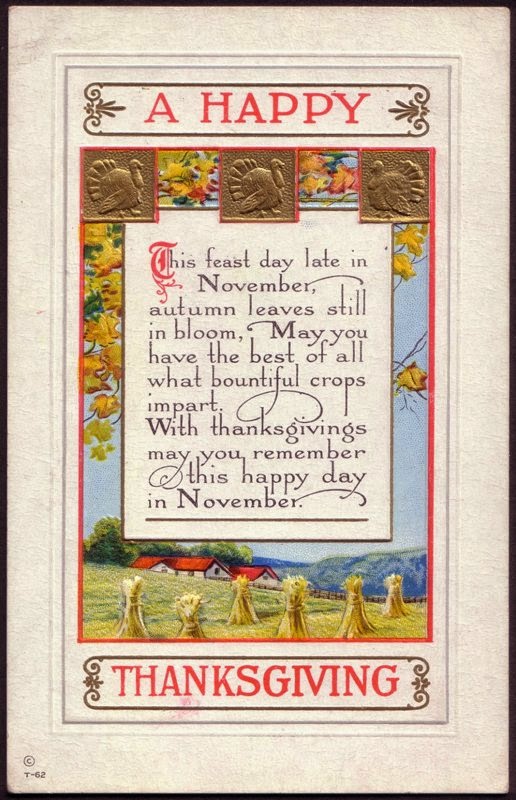 A HAPPY
This feast day late in
November,
autumn leaves still
in bloom, May you
have the best of all
what bountiful crops
impart.
With thanksgivings
may you remember
this happy day
in November.
THANKSGIVING
©
T-62